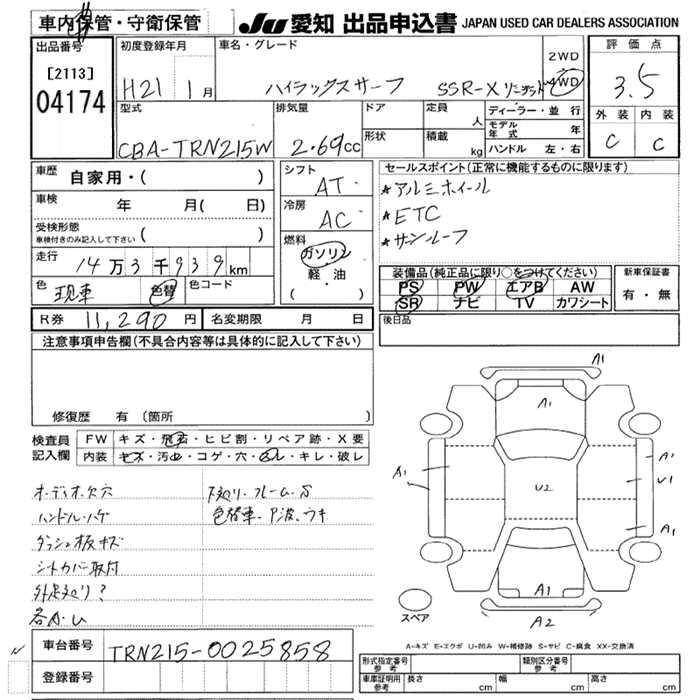 車内保管・守衛保管
JU 愛知 出品申込書 JAPAN USED CAR DEALERS ASSOCIATION
出品番号
[2113]
04174
初度登録年月
H21 1月
車名・グレード
ハイラックスサーフ SSR-X リミテッド
2WD
4WD
評価点
3.5
外装 内装
C C
型式
CBA-TRN215W
排気量
2.69cc
ドア
形状
定員 人
積載 kg
ディーラー・並行
モデル年式 年
ハンドル 左・右
車歴 自家用・( )
車検 年 月( 日)
受検形態
車検付きのみ記入して下さい ( )
走行 14万3千939km
色 現車 色替 色コード
シフト AT
冷房 AC
燃料
ガソリン
軽・油
( ・ )
セールスポイント(正常に機能するものに限ります)
*アルミホイール
*ETC
*サンルーフ
装備品(純正品に限り○をつけてください)
PS PW エアB AW
SR ナビ TV カワシート
新車保証書
有・無
R券 11,290円 名変期限 月 日
後日品
注意事項申告欄(不具合内容等は具体的に記入して下さい)
修復歴 有 〔箇所 〕
検査員記入欄
FW キズ・飛石・ヒビ割・リペア跡・X要
内装 キズ・汚れ・コゲ・穴・スレ・キレ・破レ
オーディオ欠穴
ハンドル・ハゲ
ダッシュ板キズ
シートカバー取付
外走廻り?
各A・U
下廻り・フレーム・S
色替車・P波、ウキ
A1
A1
A1
A1
U1
U2
A1
A1
A2
スペア
A-キズ E-エクボ U-凹み W-補修跡 S-サビ C-腐食 XX-交換済
N
車台番号 TRN215-0025858
登録番号
形式指定番号 参考
類別区分番号 参考
車庫証明用 参考 長さ cm 幅 cm 高さ cm